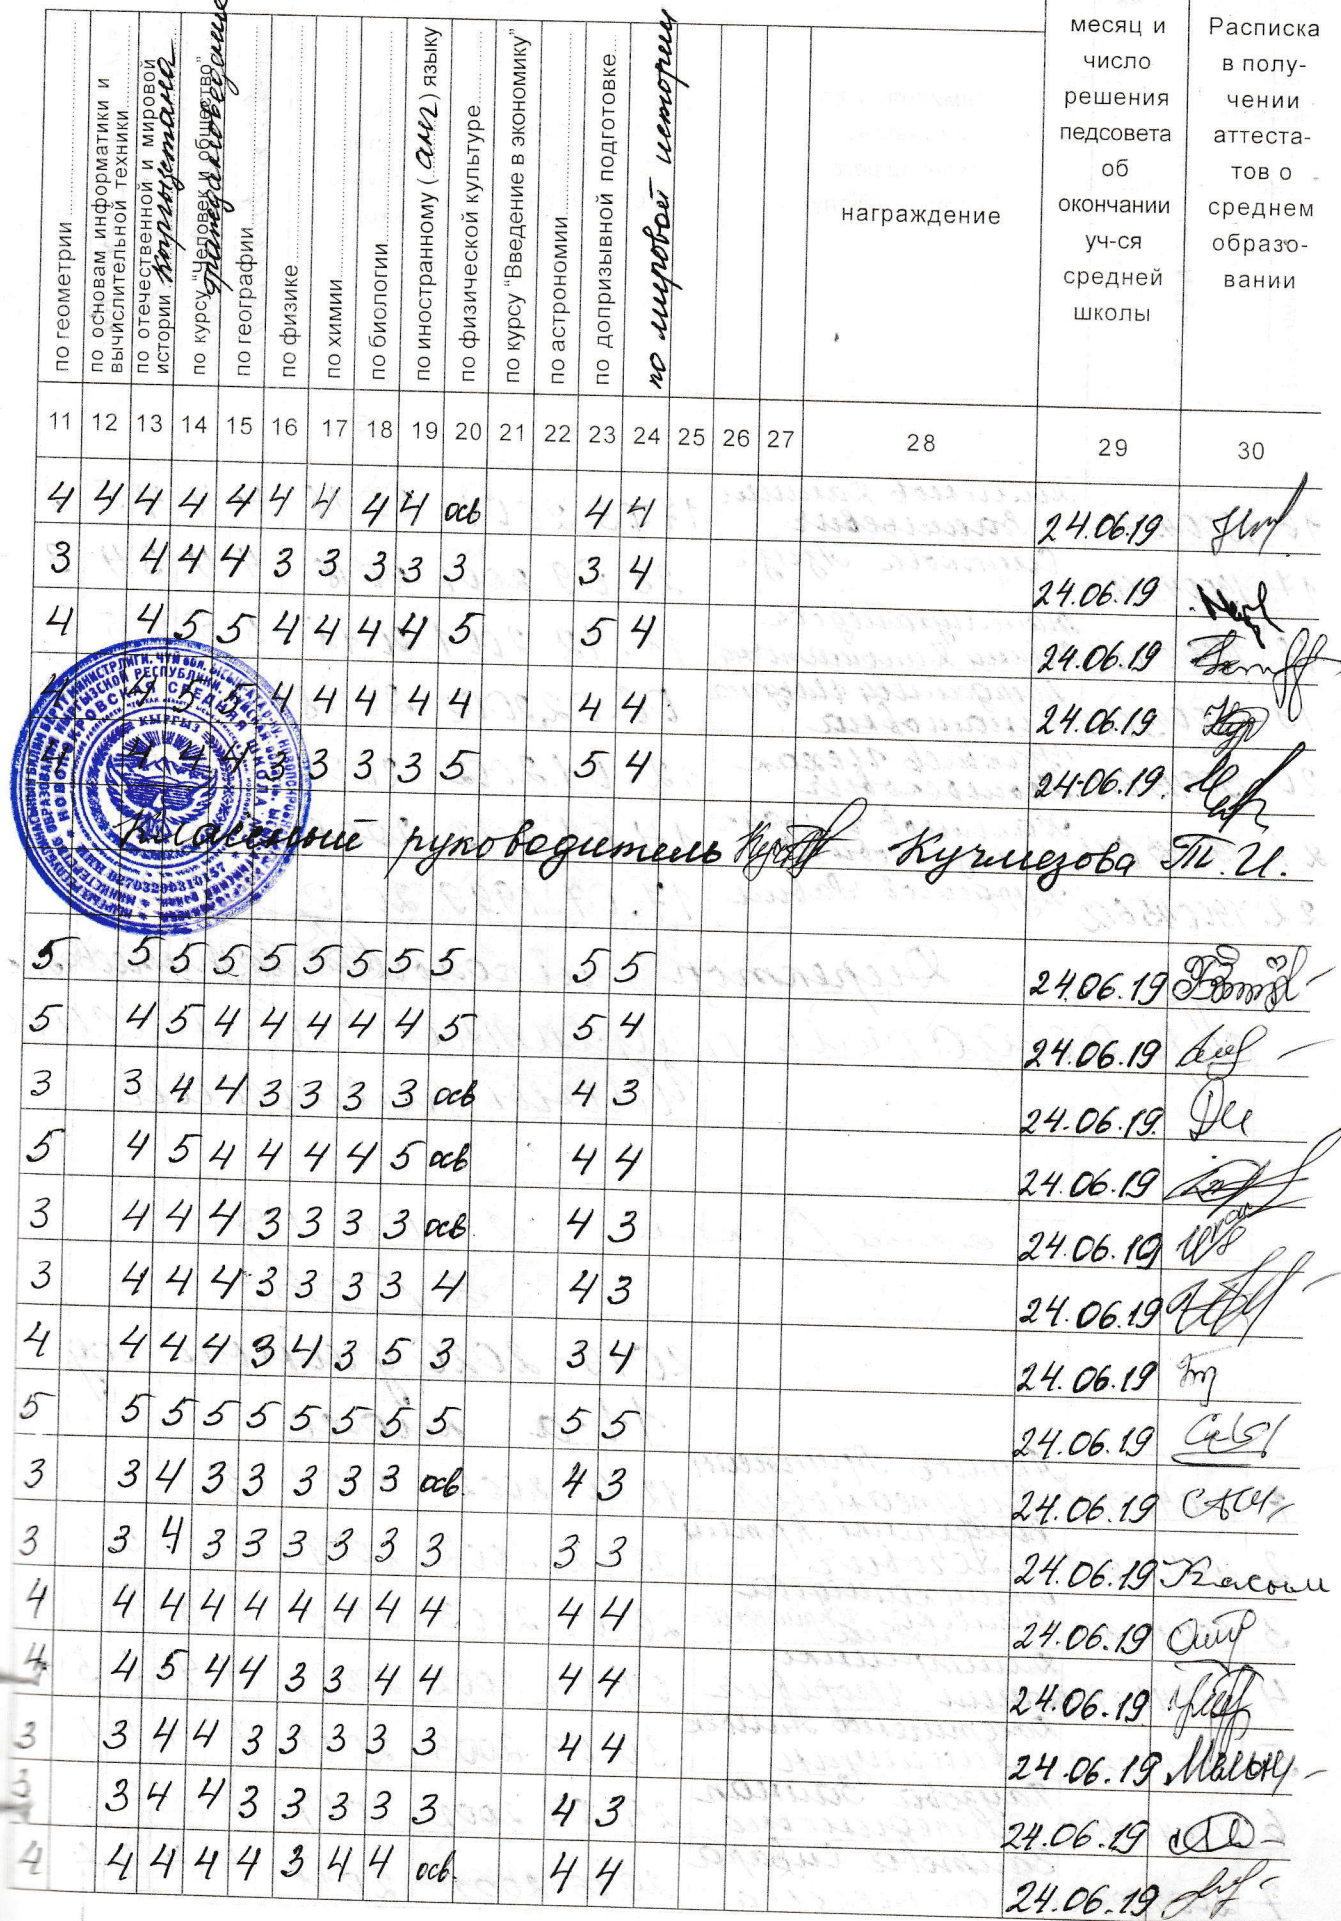 по геометрии
по основам информатики и
вычислительной техники
по отечественной и мировой
истории Кыргызстана
по курсу "Человек и общество"
граждановедение
по географии
по физике
по химии
по биологии
по иностранному (англ) языку
по физической культуре
по курсу "Введение в экономику"
по астрономии
по допризывной подготовке
по мировой истории
награждение
месяц и
число
решения
педсовета
об
окончании
уч-ся
средней
школы
Расписка
в полу-
чении
аттеста-
тов о
среднем
образо-
вании
11 12 13 14 15 16 17 18 19 20 21 22 23 24 25 26 27 28 29 30
4 4 4 4 4 4 4 4 4 осв 4 4 24.06.19
3 4 4 4 3 3 3 3 3 3 4 24.06.19
4 4 5 5 4 4 4 4 5 5 4 24.06.19
4 4 5 5 4 4 4 4 4 4 4 24.06.19
4 4 4 4 3 3 3 3 5 5 4 24.06.19.
Классный руководитель Кучмезова Т.И.
5 5 5 5 5 5 5 5 5 5 5 24.06.19
5 4 5 4 4 4 4 4 5 5 4 24.06.19
3 3 4 4 3 3 3 3 осв 4 3 24.06.19.
5 4 5 4 4 4 4 5 осв 4 4 24.06.19
3 4 4 4 3 3 3 3 осв 4 3 24.06.19
3 4 4 4 3 3 3 3 4 4 3 24.06.19
4 4 4 4 3 4 3 5 3 3 4 24.06.19
5 5 5 5 5 5 5 5 5 5 5 24.06.19
3 3 4 3 3 3 3 3 осв. 4 3 24.06.19
3 3 4 3 3 3 3 3 3 3 3 24.06.19 Касым
4 4 4 4 4 4 4 4 4 4 4 24.06.19
4 4 5 4 4 3 3 4 4 4 4 24.06.19
3 3 4 4 3 3 3 3 3 4 4 24.06.19
3 3 4 4 3 3 3 3 3 4 3 24.06.19
4 4 4 4 4 3 4 4 осв. 4 4 24.06.19